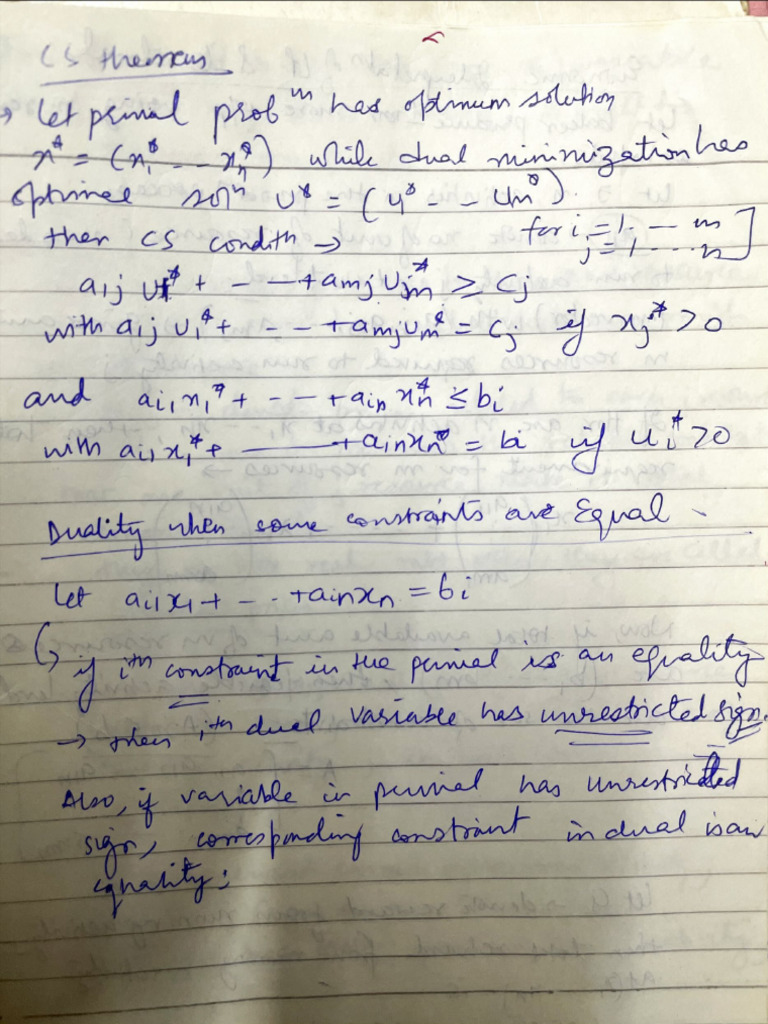 CS theorem
→ Let primal prob^m has optimum solution
x* = (x₁* - - xₙ*) while dual minimization has
optimal sol^n U* = (u* - - Um*)
then CS condith → for i = 1, - - m
j = 1, - - - n ]
a₁j U₁* + - - - + amj Um* ≥ Cj
with a₁j U₁* + - - - + amj Um* = Cj if xj* > 0
and ai₁ x₁* + - - - + ain xₙ* ≤ bi
with ai₁ x₁* + ——— + ain xn* = bi if Ui* > 0
Duality when some constraints are Equal -
Let ai₁x₁ + - - - + ainxn = bi
↳ if ith constraint in the primal is an equality
→ then ith dual variable has unrestricted sign.
Also, if variable in primal has unrestricted
sign, corresponding constraint in dual is an
equality: